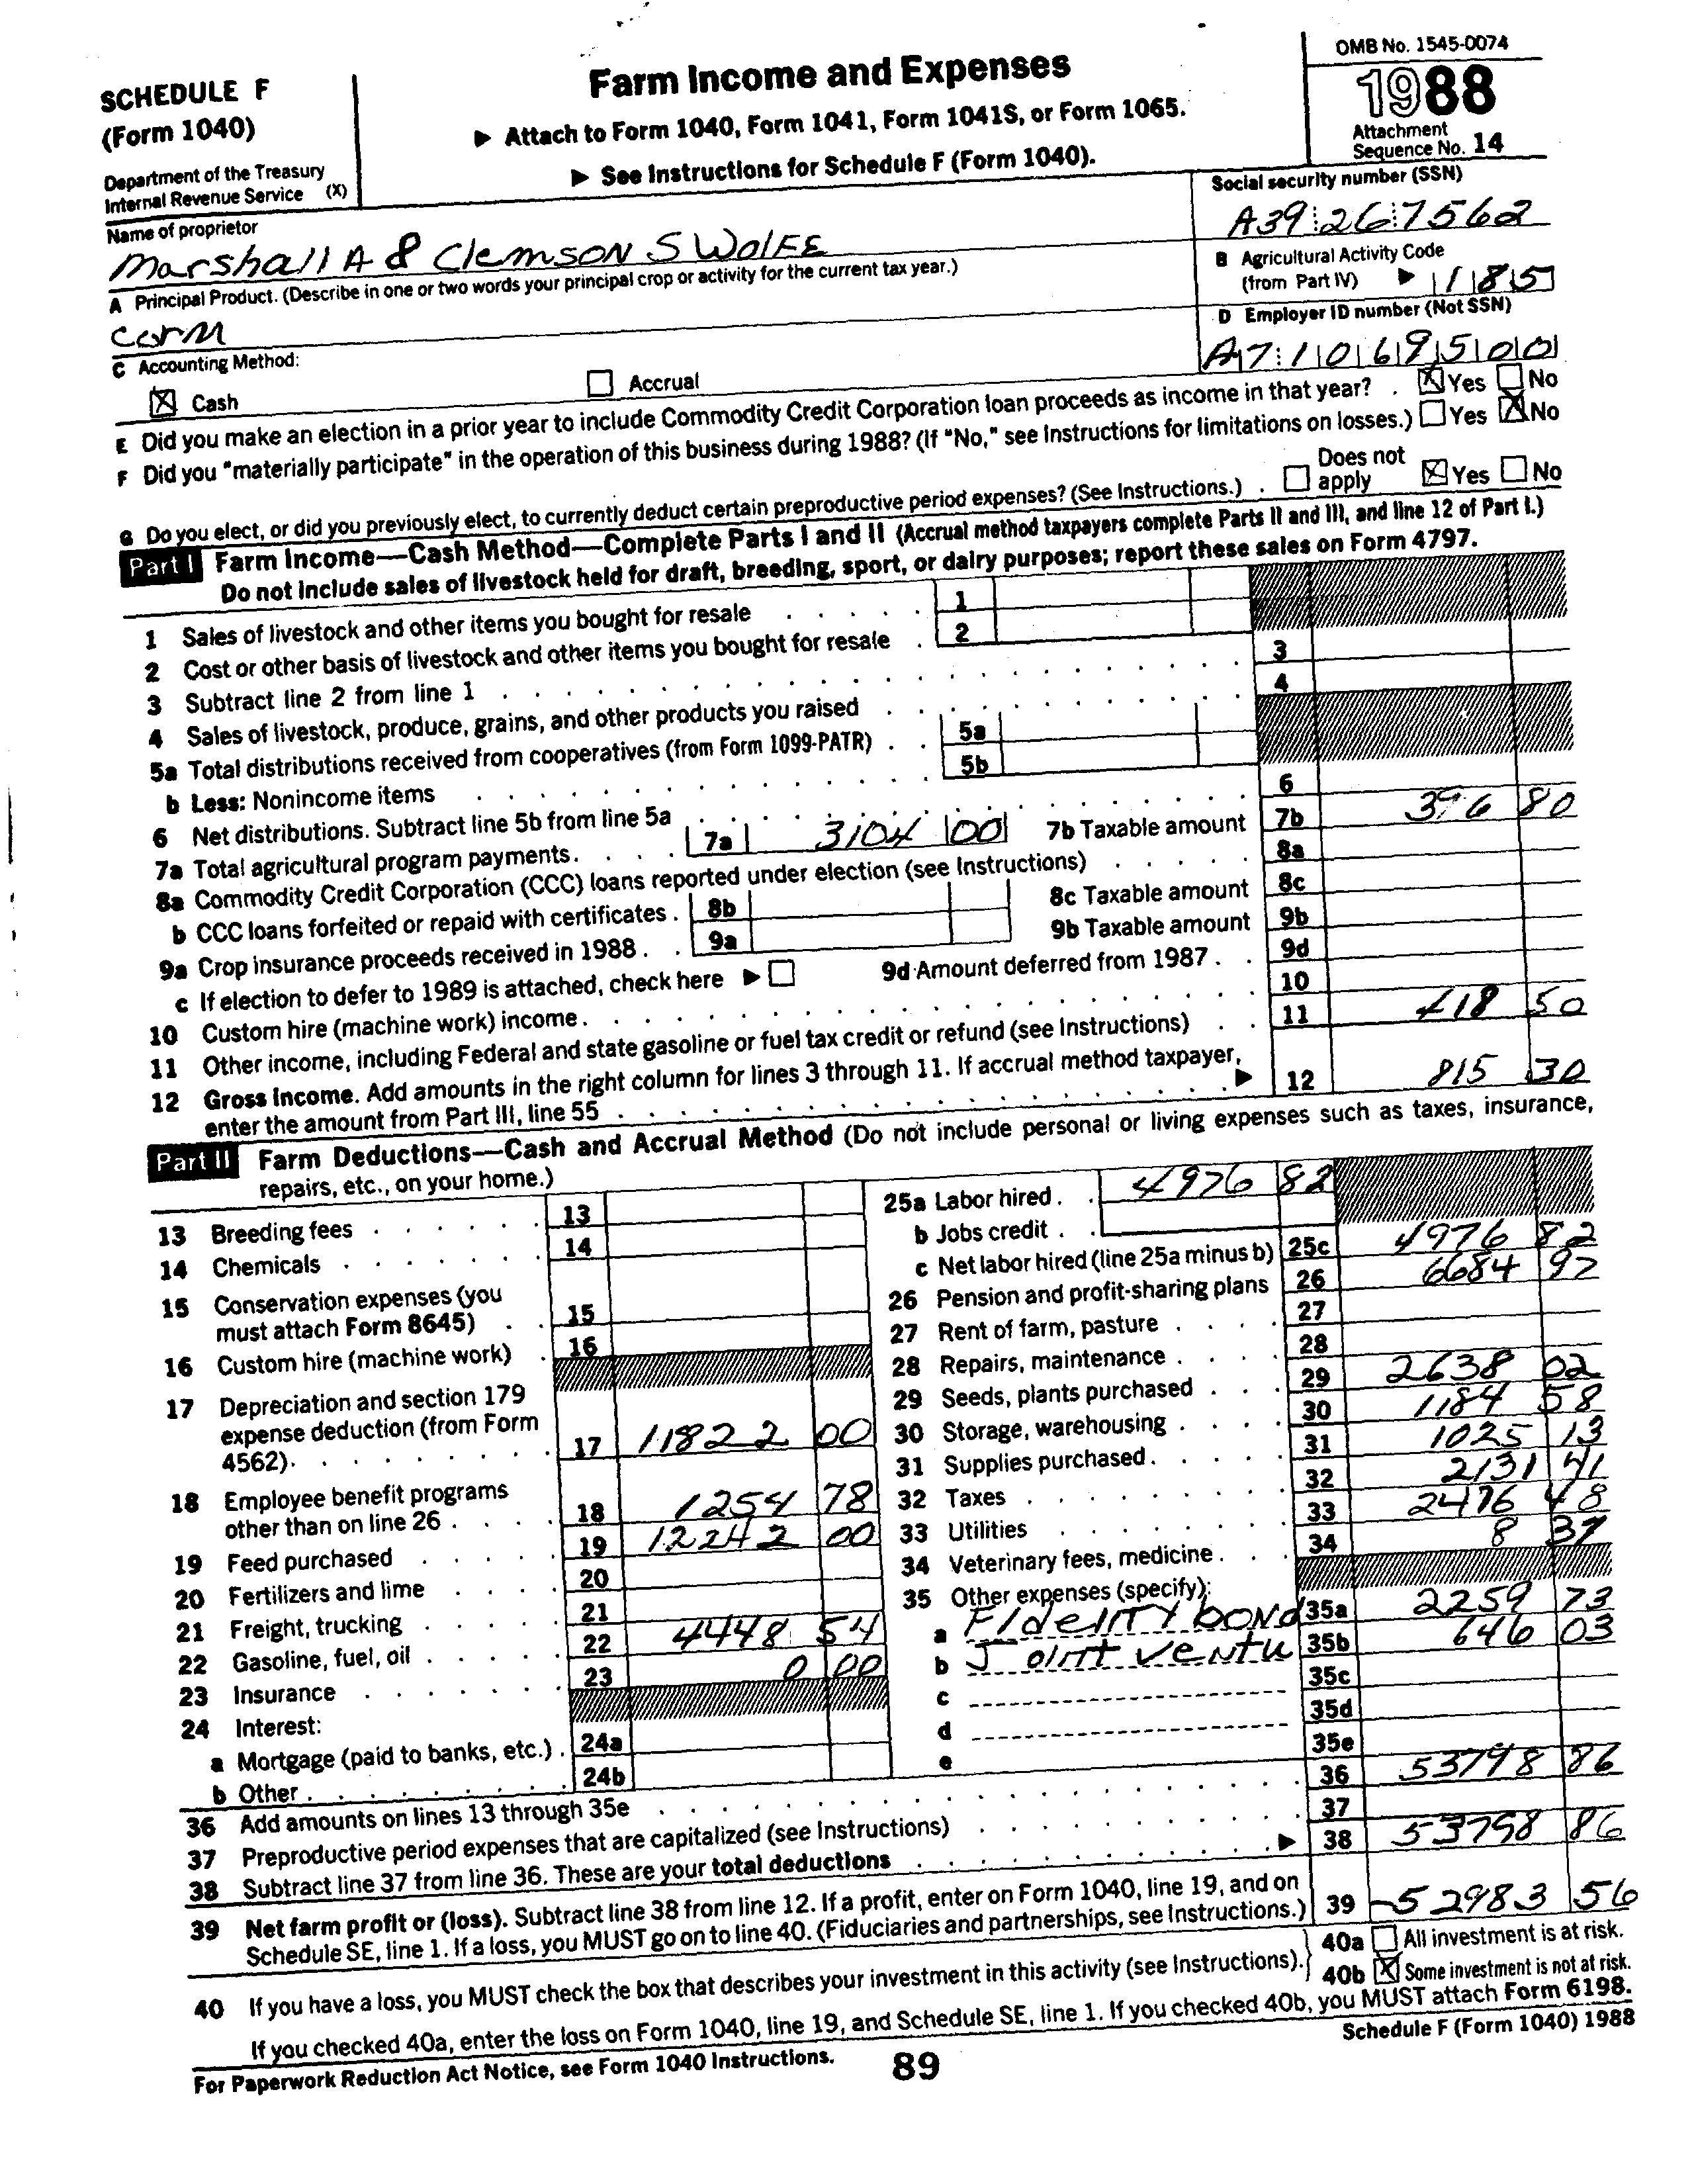 SCHEDULE F
(Form 1040)
Department of the Treasury
Internal Revenue Service (X)
Farm Income and Expenses
▶ Attach to Form 1040, Form 1041, Form 1041S, or Form 1065.
▶ See Instructions for Schedule F (Form 1040).
OMB No. 1545-0074
1988
Attachment
Sequence No. 14
Name of proprietor
Marshall A & Clemson S Wolfe
Social security number (SSN)
A39 26 7562
A Principal Product. (Describe in one or two words your principal crop or activity for the current tax year.)
B Agricultural Activity Code
(from Part IV) ▶ 185
C Accounting Method:
D Employer ID number (Not SSN)
A7 1069500
☒ Cash ☐ Accrual
E Did you make an election in a prior year to include Commodity Credit Corporation loan proceeds as income in that year? . ☒ Yes ☐ No
F Did you "materially participate" in the operation of this business during 1988? (If "No," see Instructions for limitations on losses.) ☐ Yes ☒ No
G Do you elect, or did you previously elect, to currently deduct certain preproductive period expenses? (See Instructions.) . ☐ Does not apply ☒ Yes ☐ No
Part I Farm Income—Cash Method—Complete Parts I and II (Accrual method taxpayers complete Parts II and III, and line 12 of Part I.)
Do not include sales of livestock held for draft, breeding, sport, or dairy purposes; report these sales on Form 4797.
1 Sales of livestock and other items you bought for resale 1
2 Cost or other basis of livestock and other items you bought for resale 2
3 Subtract line 2 from line 1 3
4 Sales of livestock, produce, grains, and other products you raised 4
5a Total distributions received from cooperatives (from Form 1099-PATR) 5a
b Less: Nonincome items 5b
6 Net distributions. Subtract line 5b from line 5a 6
7a Total agricultural program payments. 7a 3104 00 7b Taxable amount 7b 396 80
8a Commodity Credit Corporation (CCC) loans reported under election (see Instructions) 8a
b CCC loans forfeited or repaid with certificates . 8b 8c Taxable amount 8c
9a Crop insurance proceeds received in 1988 . 9a 9b Taxable amount 9b
c If election to defer to 1989 is attached, check here ▶ ☐ 9d Amount deferred from 1987 . 9d
10 Custom hire (machine work) income . 10
11 Other income, including Federal and state gasoline or fuel tax credit or refund (see Instructions) 11 418 50
12 Gross Income. Add amounts in the right column for lines 3 through 11. If accrual method taxpayer,
enter the amount from Part III, line 55 ▶ 12 815 30
Part II Farm Deductions—Cash and Accrual Method (Do not include personal or living expenses such as taxes, insurance,
repairs, etc., on your home.)
13 Breeding fees 13
14 Chemicals 14
15 Conservation expenses (you
must attach Form 8645) 15
16 Custom hire (machine work) 16
17 Depreciation and section 179
expense deduction (from Form
4562). 17 11822 00
18 Employee benefit programs
other than on line 26 . 18 1254 78
19 Feed purchased 19 12242 00
20 Fertilizers and lime 20
21 Freight, trucking 21
22 Gasoline, fuel, oil 22 4448 54
23 Insurance 23 0 00
24 Interest:
a Mortgage (paid to banks, etc.) . 24a
b Other . 24b
25a Labor hired . 4976 82
b Jobs credit .
c Net labor hired (line 25a minus b) 25c 4976 82
26 Pension and profit-sharing plans 26 6684 97
27 Rent of farm, pasture 27
28 Repairs, maintenance 28
29 Seeds, plants purchased 29 2638 02
30 Storage, warehousing 30 1184 58
31 Supplies purchased 31 1025 13
32 Taxes 32 2131 41
33 Utilities 33 2476 48
34 Veterinary fees, medicine 34 8 37
35 Other expenses (specify):
a Fidelity bond 35a 2259 73
b Joint ventu 35b 646 03
c 35c
d 35d
e 35e
36 Add amounts on lines 13 through 35e 36 53798 86
37 Preproductive period expenses that are capitalized (see Instructions) 37
38 Subtract line 37 from line 36. These are your total deductions ▶ 38 53798 86
39 Net farm profit or (loss). Subtract line 38 from line 12. If a profit, enter on Form 1040, line 19, and on
Schedule SE, line 1. If a loss, you MUST go on to line 40. (Fiduciaries and partnerships, see Instructions.) 39 -52983 56
40 If you have a loss, you MUST check the box that describes your investment in this activity (see Instructions).
40a ☐ All investment is at risk.
40b ☒ Some investment is not at risk.
If you checked 40a, enter the loss on Form 1040, line 19, and Schedule SE, line 1. If you checked 40b, you MUST attach Form 6198.
For Paperwork Reduction Act Notice, see Form 1040 Instructions.
89
Schedule F (Form 1040) 1988